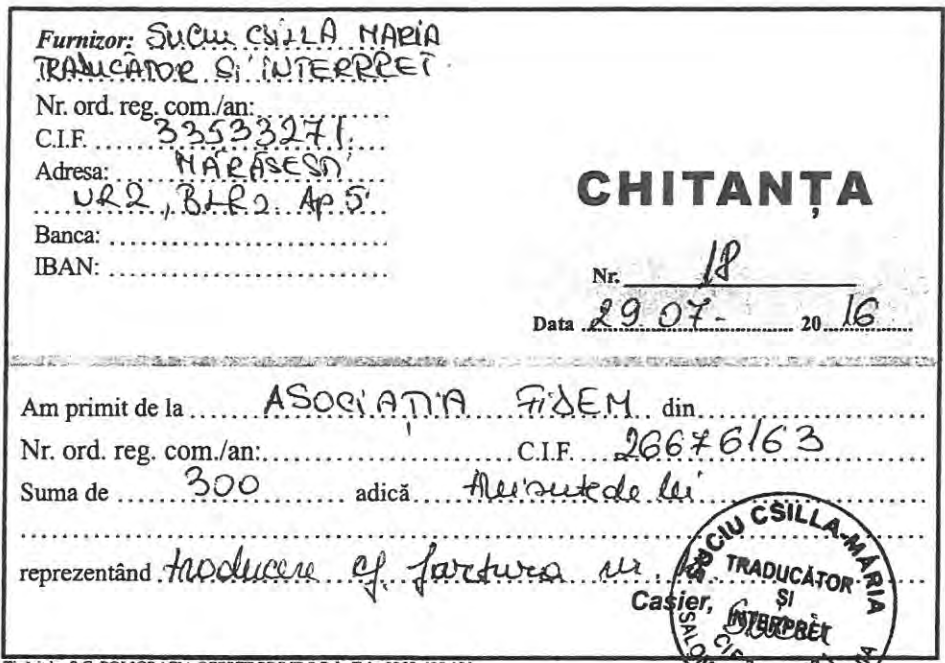 Furnizor: SUCIU CSILLA MARIA
TRADUCĂTOR ȘI INTERPRET
Nr. ord. reg. com./an:
C.I.F. 33533271
Adresa: MĂRĂSESTI
NR2, BLR2 Ap.5
Banca:
IBAN:
CHITANȚA
Nr. 18
Data 29.07. 2016
Am primit de la ASOCIAȚIA FIDEM din
Nr. ord. reg. com./an: C.I.F. 26676163
Suma de 300 adică treisutede lei
reprezentând traducere cf. factura nr.
Casier,
SUCIU CSILLA-MÁRIA
TRADUCĂTOR
ȘI
INTERPRET